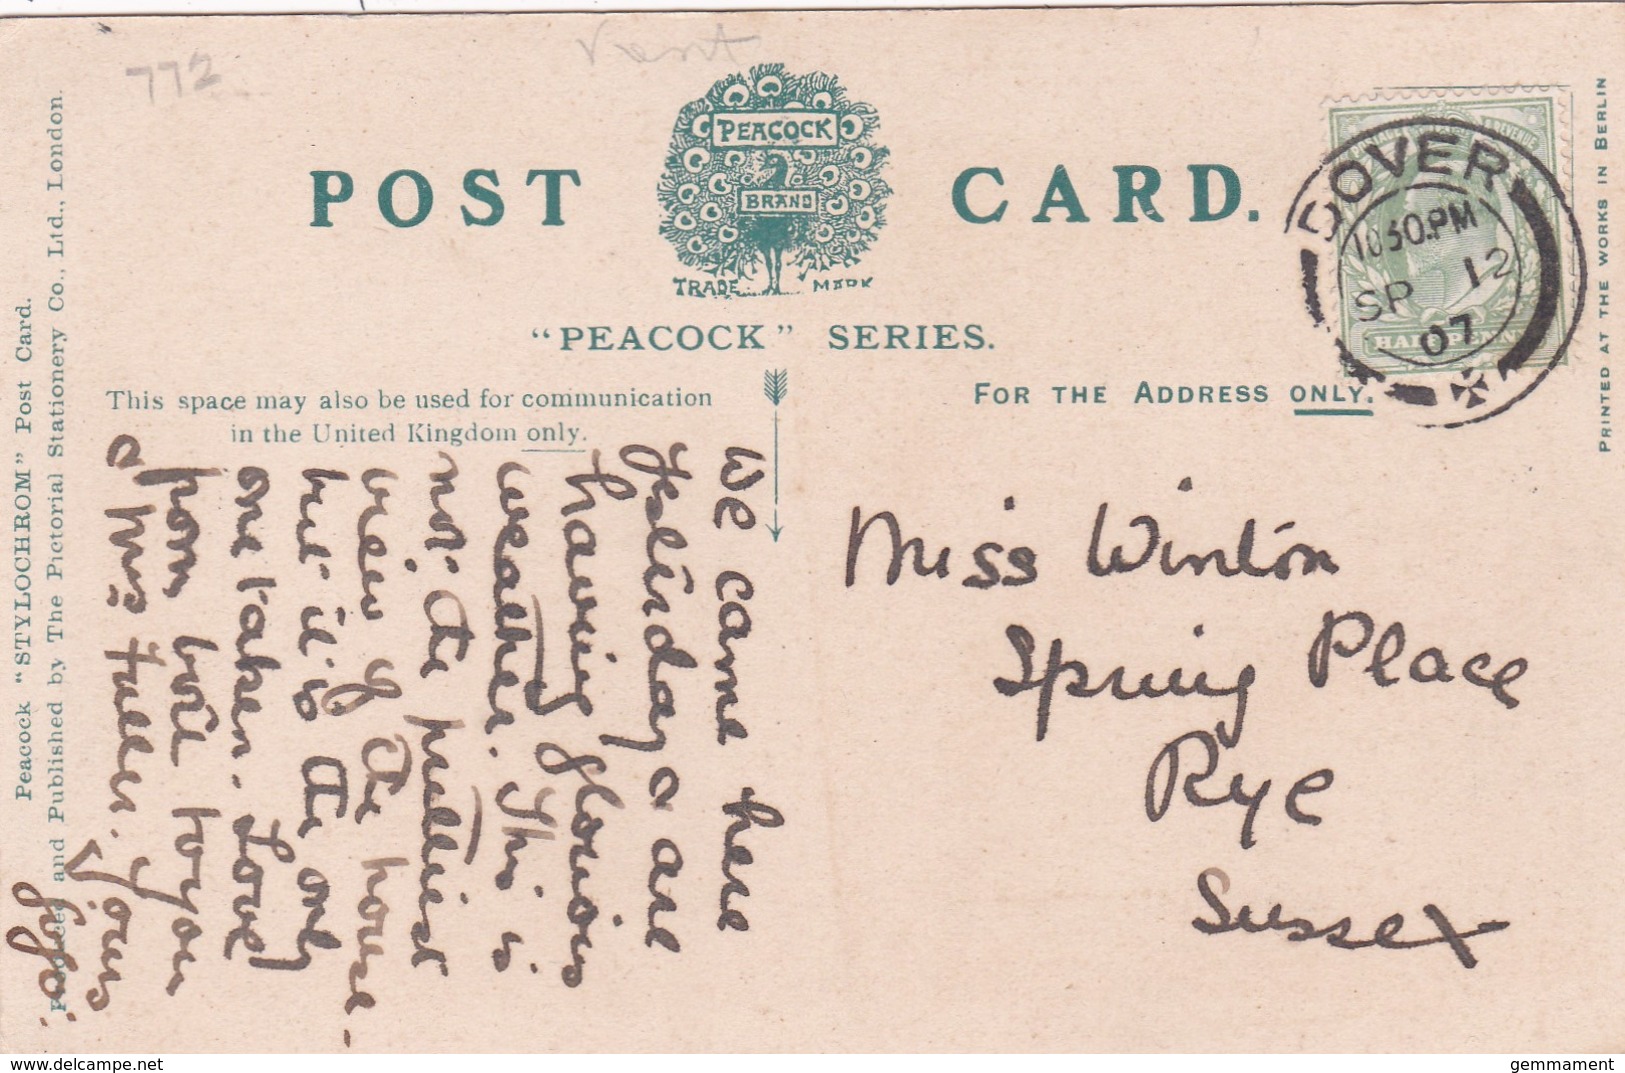 772
Kent
POST CARD.
PEACOCK
BRAND
TRADE MARK
"PEACOCK" SERIES.
This space may also be used for communication
in the United Kingdom only.
FOR THE ADDRESS ONLY.
DOVER
10 30.PM
SP 12
07
HALFPENNY
PRINTED AT THE WORKS IN BERLIN
Peacock "STYLOCHROM" Post Card.
Produced and Published by The Pictorial Stationery Co., Ltd., London.
We came here
yesterday & are
having glorious
weather. This is
not the prettiest
view of the house -
but it is the only
one taken. Love
from both to you
& Mrs Fuller. Yours
Miss Winton
Spring Place
Rye
Sussex
www.delcampe.net
gemmament